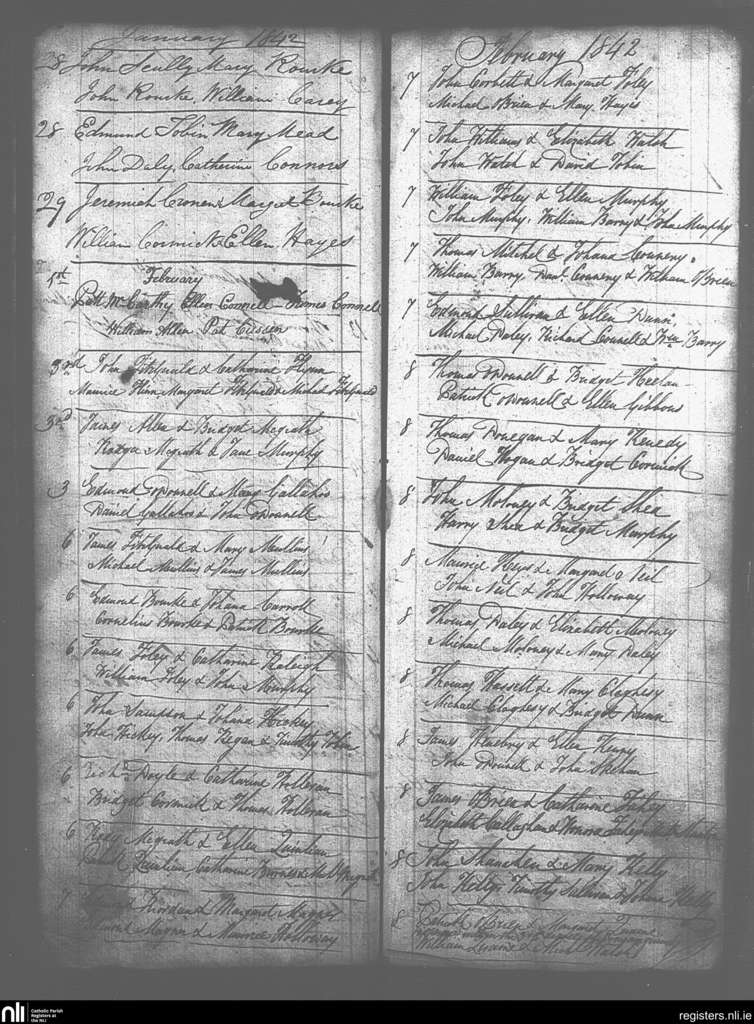 January 1842
28 John Scully Mary Rourke
John Rourke William Carey
28 Edmund Tobin Mary Mead
John Daly Catherine Connors
29 Jeremiah Cronen & Margt Rourke
William Cormick & Ellen Hayes
February
Patt McCarthy Ellen Connell Thomas Connell
William Allen Pat
3rd John Fitzgerald & Catharine Flynn
Maurice Margaret Fitzgerald & Michael Fitzgerald
3rd James Allen & Bridget Megrath
Megrath & Jane Murphy
3 Edmond O Donnell & Mary Gallahor
Daniel Gallahor & John O Donnell
6 James Fitzgerald & Mary Mullins
Michael Mullins & James Mullins
6 Edmond Bourke & Johana Carroll
Cornelius Bourke & Patrick Bourke
6 James Foley & Catharine Raleigh
William Foley & John Murphy
6 John Sampson & Johana Hickey
John Hickey, Thomas Hegan & Timothy Tobin
6 Richd Doyle & Catharine Holleran
Bridget Cormick & Thomas Holleran
6 Megrath & Ellen Quinlan
Quinlan Catharine
7 Riordan & Margaret Magner
Edmond Magner & Maurice Holloway
February 1842
7 John Corbett & Margaret Foley
Michael OBrien & Mary Hayes
7 John Williams & Elizabeth Walsh
John Walsh & David Tobin
7 William Foley & Ellen Murphy
John Murphy, William Barry & John Murphy
7 Thomas Mitchel & Johana Counery
William Barry Danl. Counery & William OBrien
7 Edmond Sullivan & Ellen Dunn
Michael Daley, Richard Connell & Wm Barry
8 Thomas ODonnell & Bridget Heelan
Patrick ODonnell & Ellen Gibbons
8 Thomas Donegan & Mary Kenedy
Daniel Hogan & Bridget Cormick
8 John Moloney & Bridget Shea
Harry Shea & Bridget Murphy
8 Maurice Hays & Margaret O Neil
John Neil & John Holloway
8 Thomas Daley & Elizabeth Moloney
Michael Moloney & Mary Daley
8 Thomas Hassett & Mary Claghesy
Michael Claghesy & Bridget Dunn
8 James & Ellen Henry
John & John Sheehan
8 James OBrien & Catharine Fahey
Elizabeth Callaghan & Honora Fahey
8 John Shanahan & Mary Kelly
John Kelly, Timothy Sullivan & Johana Kelly
8 Patrick OBrien & Margaret
William & Walsh
nli
Catholic Parish
Registers at
the NLI
registers.nli.ie